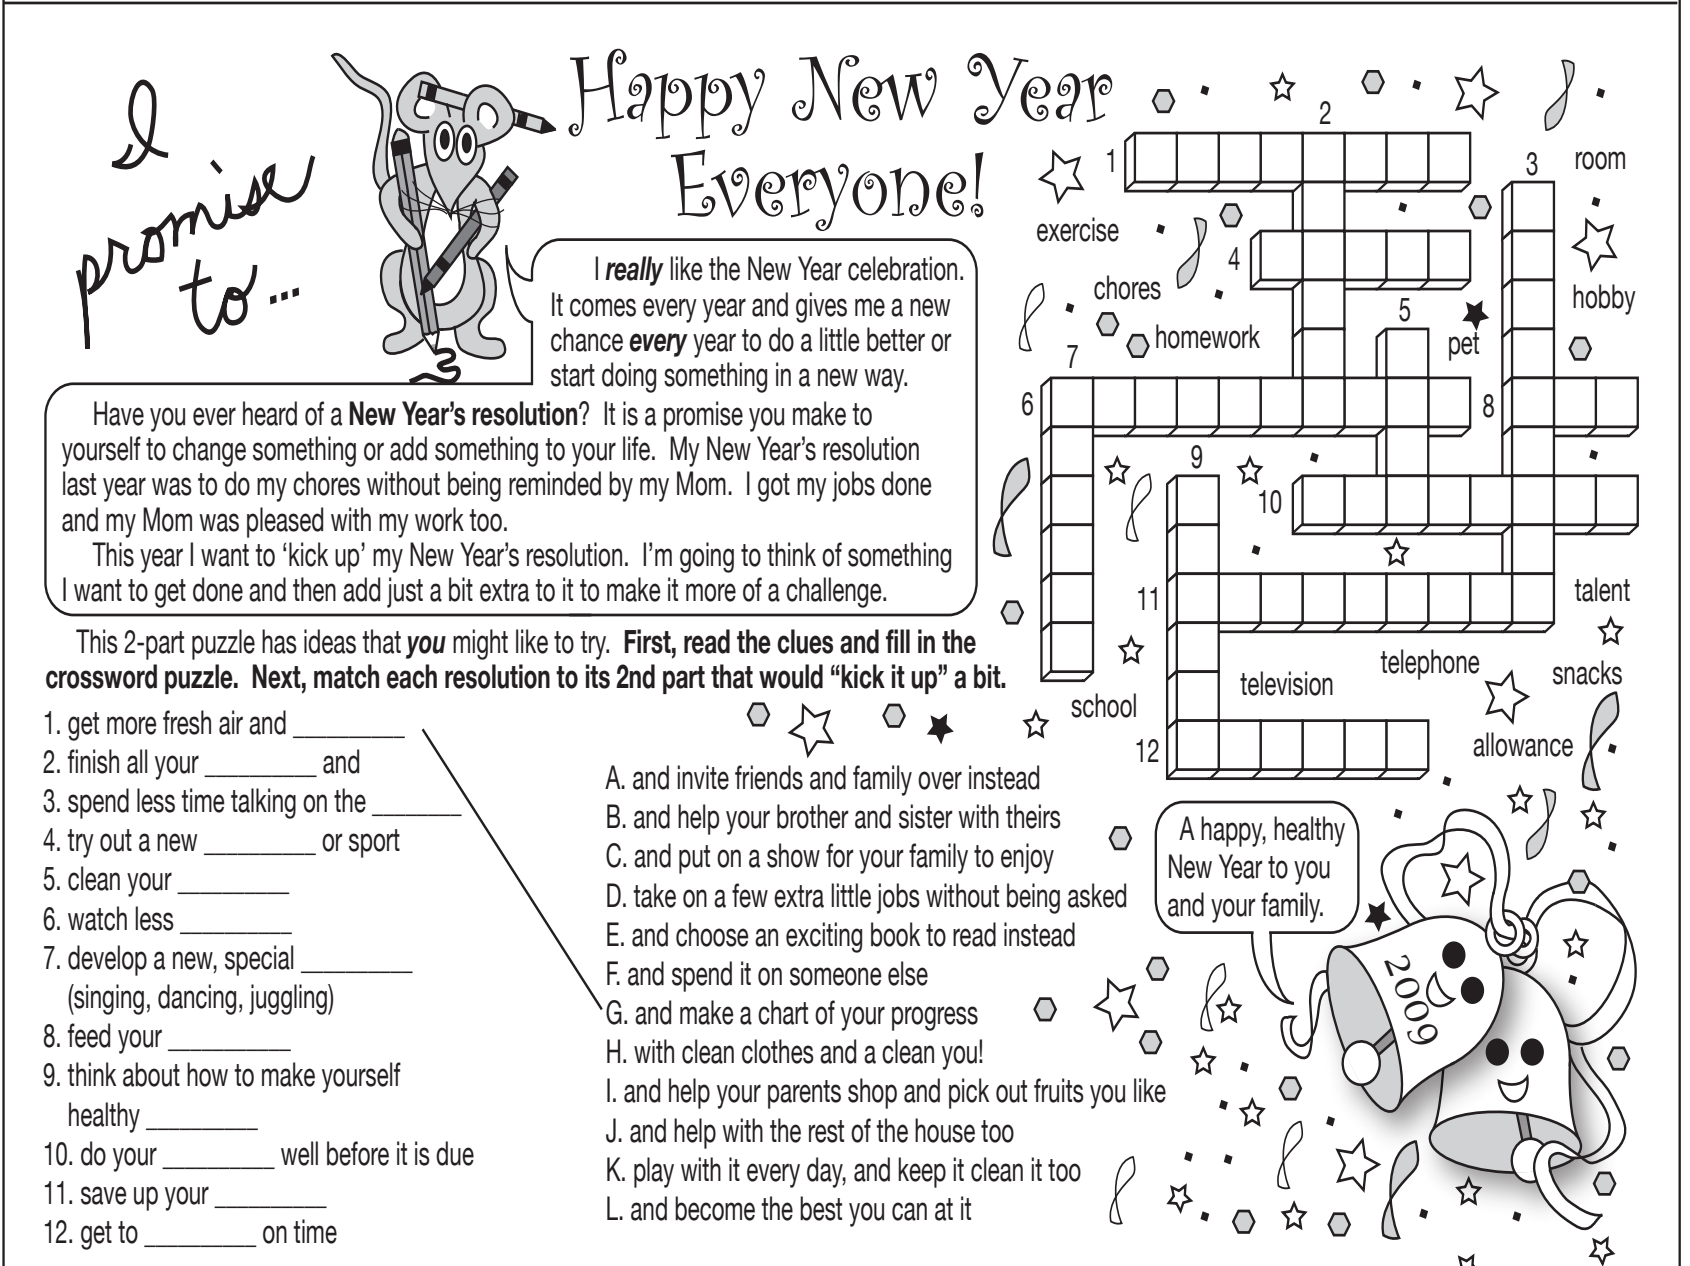 I
promise
to...
Happy New Year
Everyone!
I really like the New Year celebration.
It comes every year and gives me a new
chance every year to do a little better or
start doing something in a new way.
Have you ever heard of a New Year's resolution? It is a promise you make to
yourself to change something or add something to your life. My New Year's resolution
last year was to do my chores without being reminded by my Mom. I got my jobs done
and my Mom was pleased with my work too.
This year I want to 'kick up' my New Year's resolution. I'm going to think of something
I want to get done and then add just a bit extra to it to make it more of a challenge.
This 2-part puzzle has ideas that you might like to try. First, read the clues and fill in the
crossword puzzle. Next, match each resolution to its 2nd part that would "kick it up" a bit.
1. get more fresh air and __________
2. finish all your __________ and
3. spend less time talking on the ________
4. try out a new __________ or sport
5. clean your __________
6. watch less __________
7. develop a new, special __________
(singing, dancing, juggling)
8. feed your ___________
9. think about how to make yourself
healthy __________
10. do your __________ well before it is due
11. save up your __________
12. get to __________ on time
A. and invite friends and family over instead
B. and help your brother and sister with theirs
C. and put on a show for your family to enjoy
D. take on a few extra little jobs without being asked
E. and choose an exciting book to read instead
F. and spend it on someone else
G. and make a chart of your progress
H. with clean clothes and a clean you!
I. and help your parents shop and pick out fruits you like
J. and help with the rest of the house too
K. play with it every day, and keep it clean it too
L. and become the best you can at it
2
1
3
room
exercise
4
chores
hobby
5
homework
pet
7
6
8
9
10
11
talent
telephone
snacks
television
school
allowance
12
A happy, healthy
New Year to you
and your family.
2009